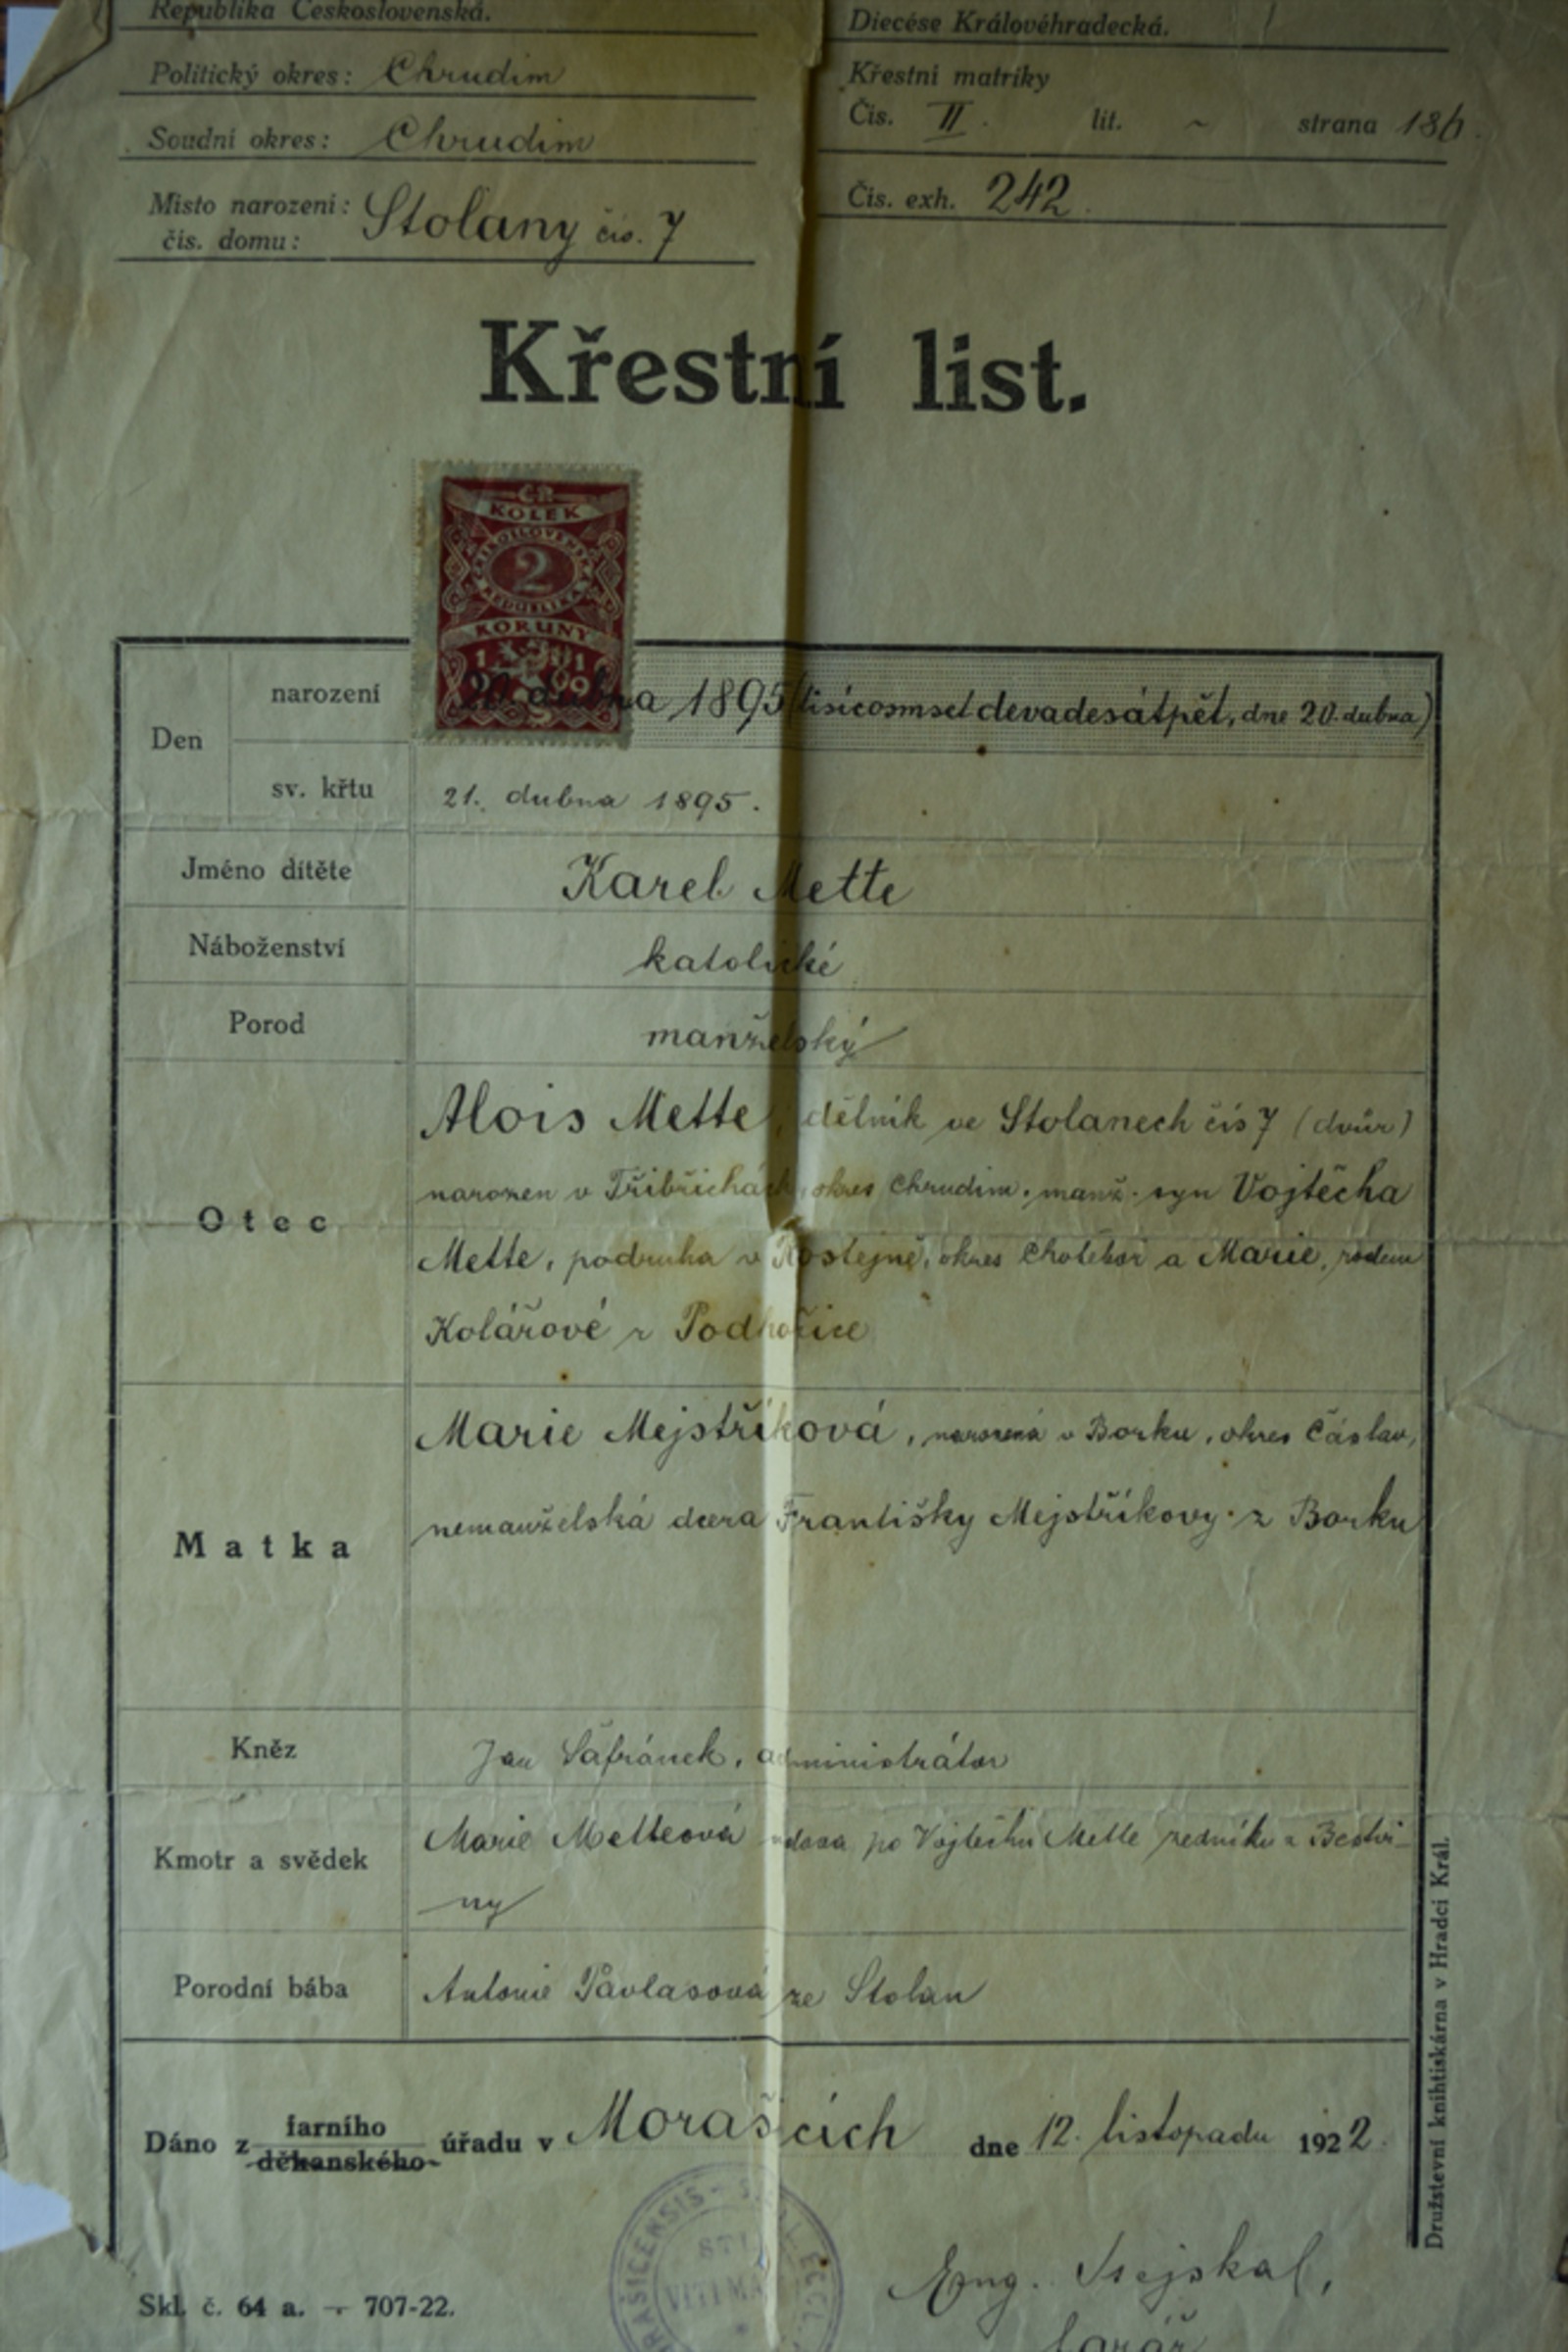 Republika Československá.
Politický okres: Chrudim
Soudní okres: Chrudim
Místo narození: Stolany čís. 7
čís. domu:
Diecése Královéhradecká.
Křestní matriky
Čís. II. lit. ~ strana 186.
Čís. exh. 242.
Křestní list.
ČR
KOLEK
ČESKOSLOVENSKÁ
2
REPUBLIKA
KORUNY
1919
Den
narození
20. dubna 1895 (tisícosmset devadesátpět, dne 20. dubna)
sv. křtu
21. dubna 1895.
Jméno dítěte
Karel Mette
Náboženství
katolické
Porod
manželský
Otec
Alois Mette, dělník ve Stolanech čís 7 (dvůr)
narozen v Třibřichách, okres Chrudim, manž. syn Vojtěcha
Mette, podruha v Rostejně, okres Chotěboř a Marie, rodem
Kolářové z Podhořice
Matka
Marie Mejstříková, narozená v Borku, okres Čáslav,
nemanželská dcera Františky Mejstříkovy z Borku
Kněz
Jan Šafránek, administrátor
Kmotr a svědek
Marie Metteová vdova po Vojtěchu Mette zedníku z Bestvi-
ny
Porodní bába
Antonie Pavlasová ze Stolan
Dáno z farního úřadu v Morašicích dne 12. listopadu 1922.
děkanského
Družstevní knihtiskárna v Hradci Král.
Skl. č. 64 a. — 707-22.
farář